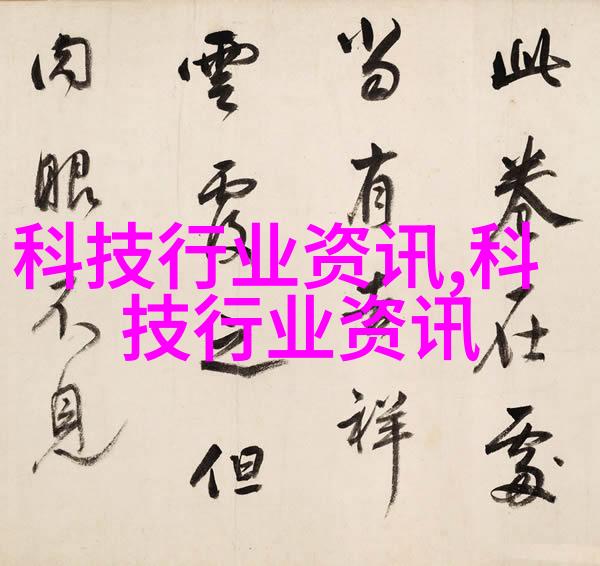 此卷在處
當有吉祥
雲覆之但
肉眼不見
科技行业资讯,科
技行业资讯